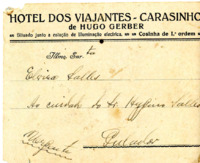 HOTEL DOS VIAJANTES - CARASINHO
de HUGO GERBER
Situado junto a estação de illuminação electrica. Cosinha de 1.ª ordem
Illma. Snr.ta
Elvira Salles
Ao cuidado do Sr. Hygino Salles
Pulador